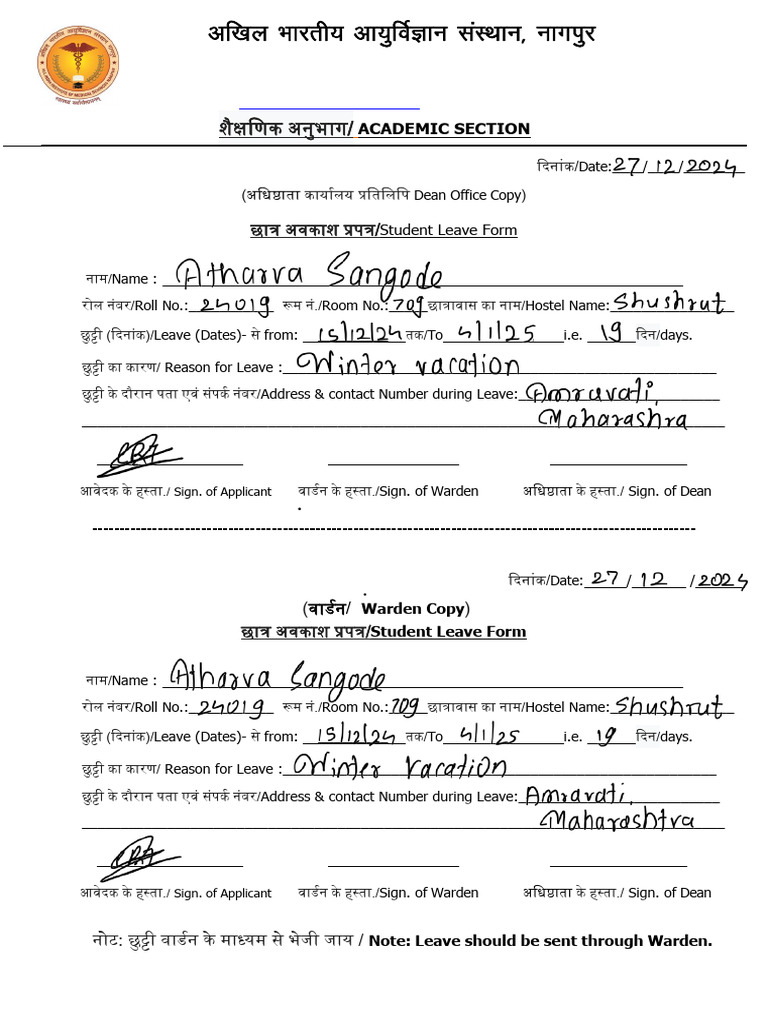 अखिल भारतीय आयुर्विज्ञान संस्थान, नागपुर
शैक्षणिक अनुभाग/ ACADEMIC SECTION
दिनांक/Date: 27/12/2024
(अधिष्ठाता कार्यालय प्रतिलिपि Dean Office Copy)
छात्र अवकाश प्रपत्र/Student Leave Form
नाम/Name : Atharva Sangode
रोल नंबर/Roll No.: 24019 रूम नं./Room No.: 709 छात्रावास का नाम/Hostel Name: Shushrut
छुट्टी (दिनांक)/Leave (Dates)- से from: 15/12/24 तक/To 4/1/25 i.e. 19 दिन/days.
छुट्टी का कारण/ Reason for Leave : Winter vacation
छुट्टी के दौरान पता एवं संपर्क नंबर/Address & contact Number during Leave: Amravati,
Maharashra
आवेदक के हस्ता./ Sign. of Applicant वार्डन के हस्ता./Sign. of Warden अधिष्ठाता के हस्ता./ Sign. of Dean
दिनांक/Date: 27 / 12 / 2024
(वार्डन/ Warden Copy)
छात्र अवकाश प्रपत्र/Student Leave Form
नाम/Name : Atharva Sangode
रोल नंबर/Roll No.: 24019 रूम नं./Room No.: 709 छात्रावास का नाम/Hostel Name: Shushrut
छुट्टी (दिनांक)/Leave (Dates)- से from: 15/12/24 तक/To 4/1/25 i.e. 19 दिन/days.
छुट्टी का कारण/ Reason for Leave : Winter vacation
छुट्टी के दौरान पता एवं संपर्क नंबर/Address & contact Number during Leave: Amravati,
Maharashtra
आवेदक के हस्ता./ Sign. of Applicant वार्डन के हस्ता./Sign. of Warden अधिष्ठाता के हस्ता./ Sign. of Dean
नोट: छुट्टी वार्डन के माध्यम से भेजी जाय / Note: Leave should be sent through Warden.